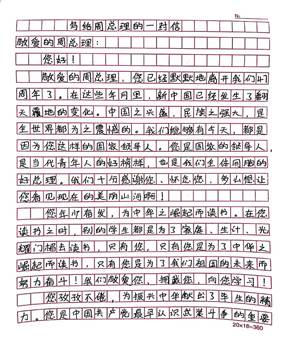 №
写给周总理的一封信
敬爱的周总理:
您好!
敬爱的周总理,您已经默默地离开我们
周年了。在这些年里,新中国已经发生了翻
天覆地的变化。中国之兴盛,民族之强大,是
全世界都为之震撼的。我们能够有今天,都是
因为您这样的国家领导人。您是国家的领导人,
是当代青年人的好榜样,也是我们全体同胞的
好总理。我们十分感谢您、怀念您,多么想让
您看见现在的美丽山河啊!
您年少有成,为中华之崛起而读书。在您
读书之时,别的学生都是为了家庭、生计、光
耀门楣去读书,只有您,只有您是为了中华之
崛起而读书,只有您是为了我们祖国的未来而
努力奋斗!我们敬爱您,拥戴您,向您学习!
您孜孜不倦,为振兴中华献出了毕生的精
力。您是中国共产党最早认识武装斗争的重要
20×18=360